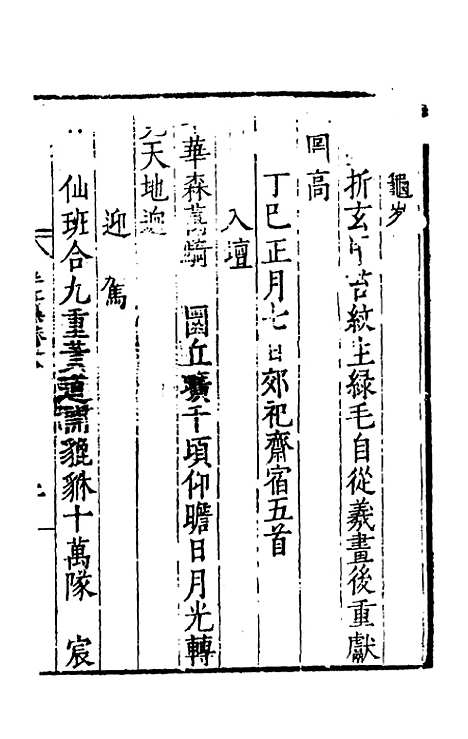 龜歲
折玄甲苔紋生綠毛自從羲畫後重獻
罔高
丁巳正月七日郊祀齋宿五首
入壇
華森萬騎圜丘曠千頃仰瞻日月光轉
天地迎
迎駕
仙班合九重輦道肅貔貅十萬隊宸